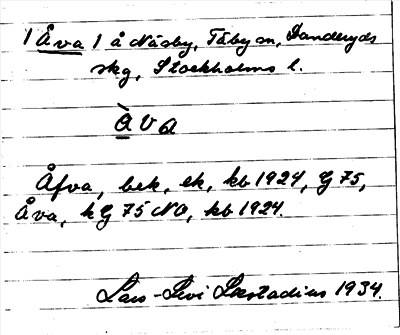 1 Åva 1 å Näsby, Täby sn, Danderyds
skg, Stockholms l.
àva
Åfva, bek, ek, kb 1924, G 75,
Åva, kG 75 NO, kb 1924.
Lars-Levi Læstadius 1934.